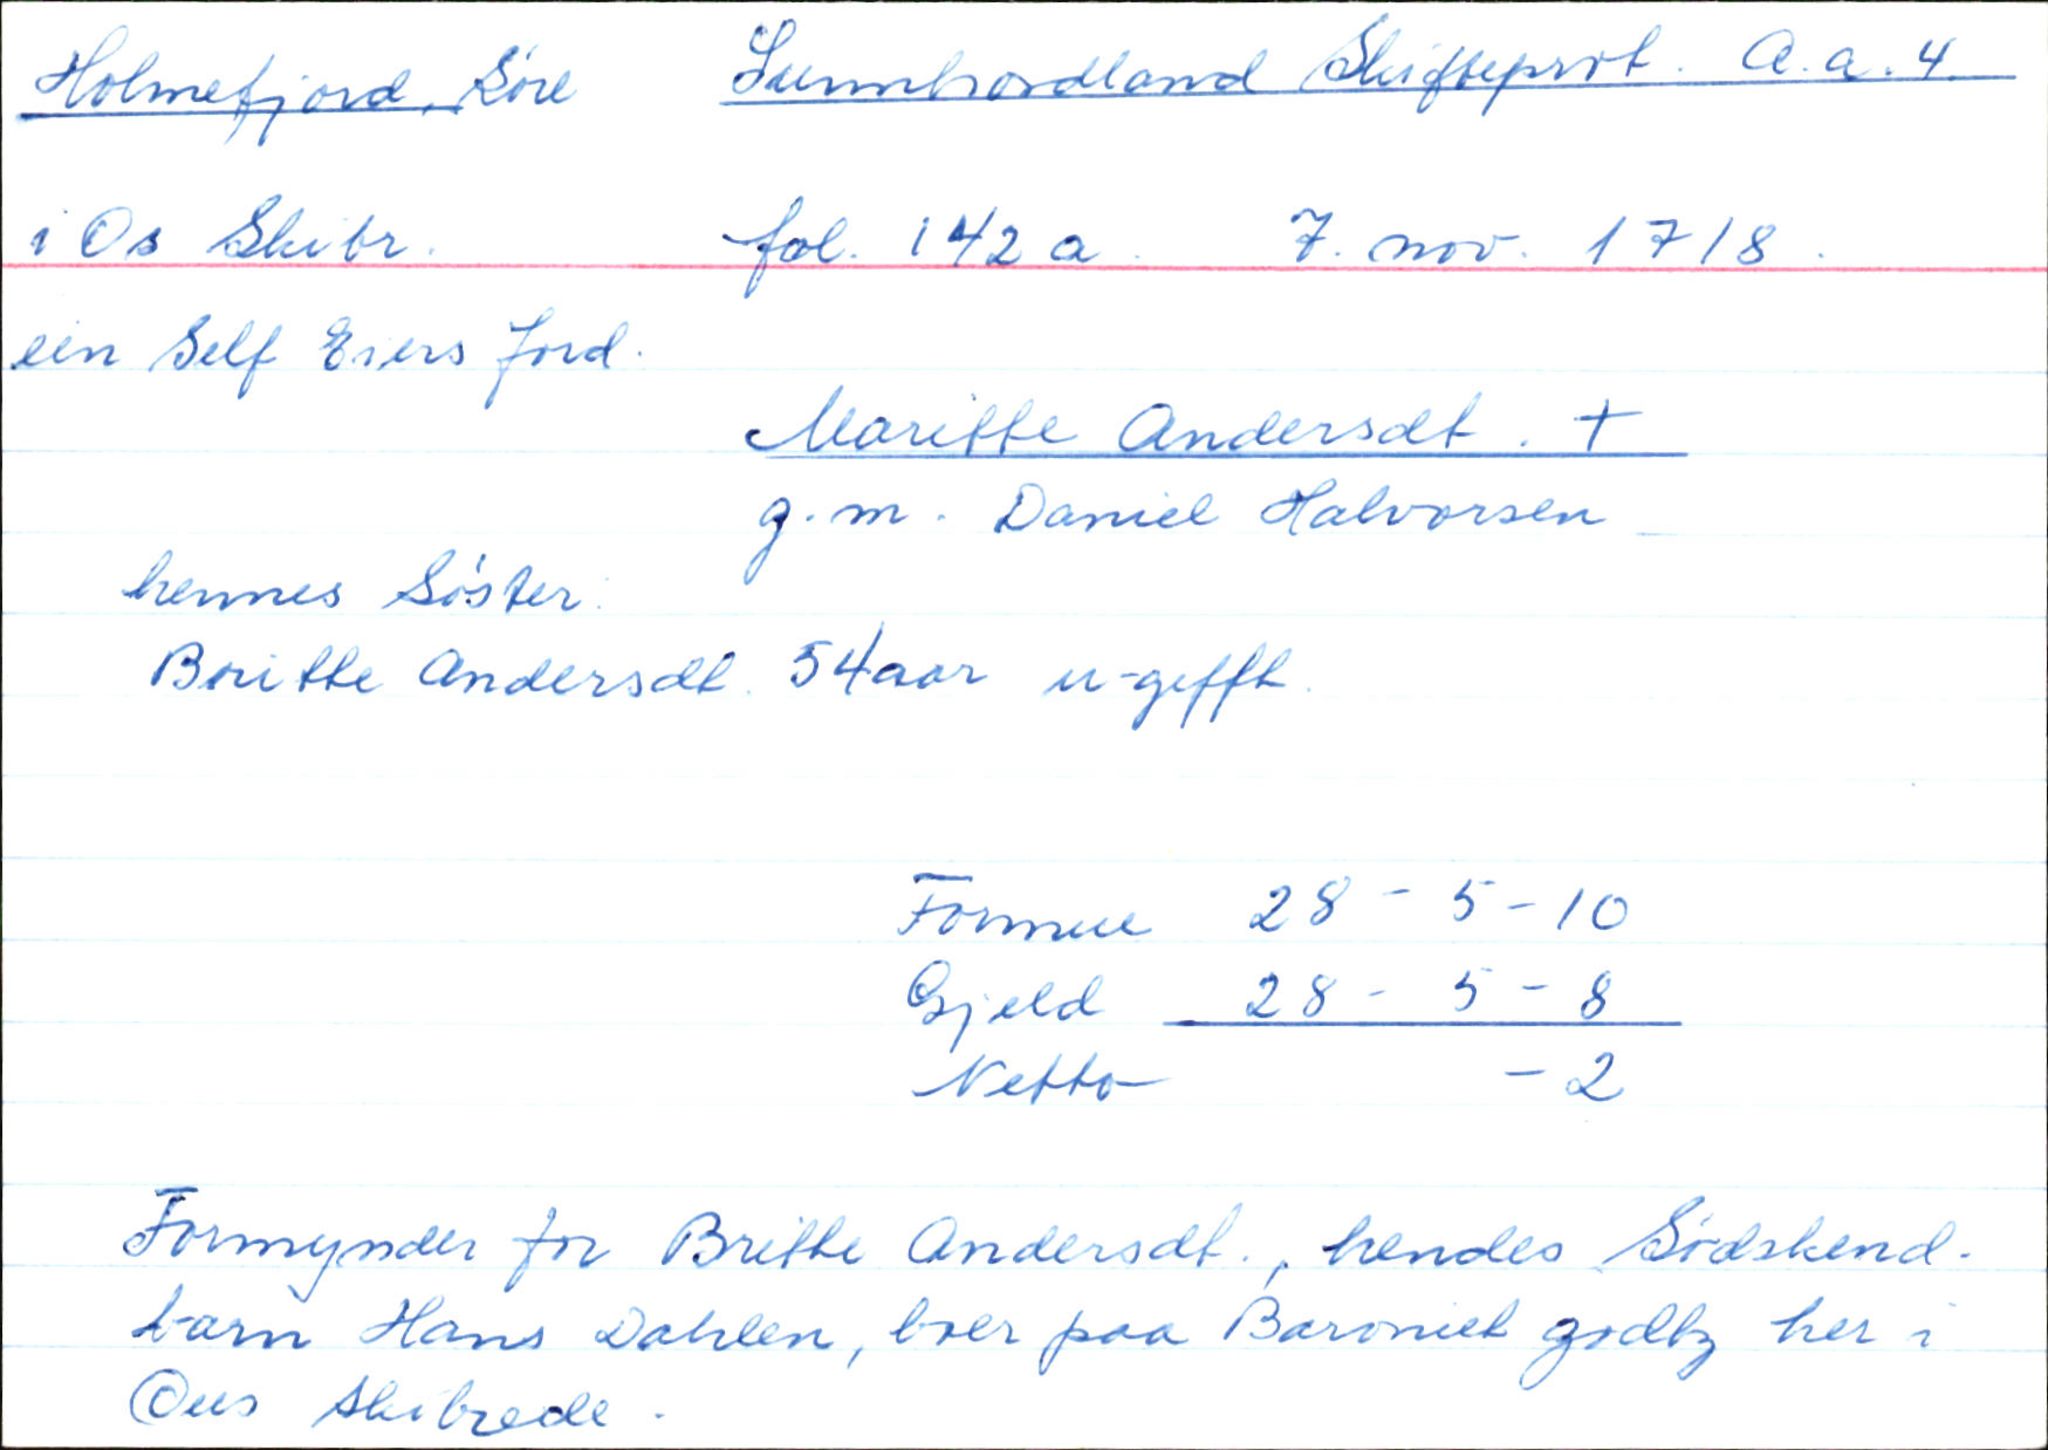 Holmefjord, Söre Sunnhordland Skifteprot. A.a.4.
i Os Skibr. fol. 142 a. 7. nov. 1718.
ein Self Eiers Jord.
Maritte Andersdt. +
g.m. Daniel Halvorsen
hennes Söster:
Britte Andersdt. 54 aar u-gifft.
Formue 28 - 5 - 10
Gjeld 28 - 5 - 8
Netto - 2
Formynder for Britte Andersdt., hendes Södskend-
barn Hans Dahlen, boer paa Baroniet godtz her i
Ous skibrede.